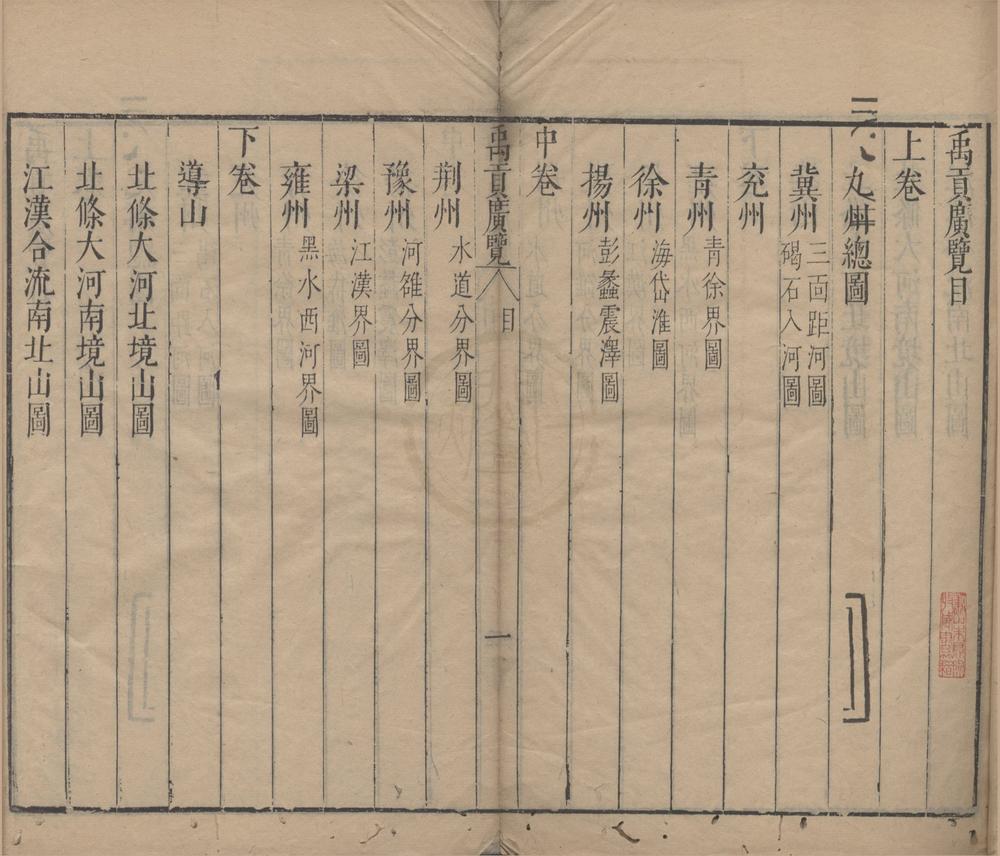 禹貢廣覽目
上卷
九州總圖
冀州 三面距河圖
碣石入河圖
兖州
青州 青徐界圖
徐州 海岱淮圖
揚州 彭蠡震澤圖
中卷
禹貢廣覽 目 一
荆州 水道分界圖
豫州 河雒分界圖
梁州 江漢界圖
雍州 黑水西河界圖
下卷
導山
北條大河北境山圖
北條大河南境山圖
江漢合流南北山圖